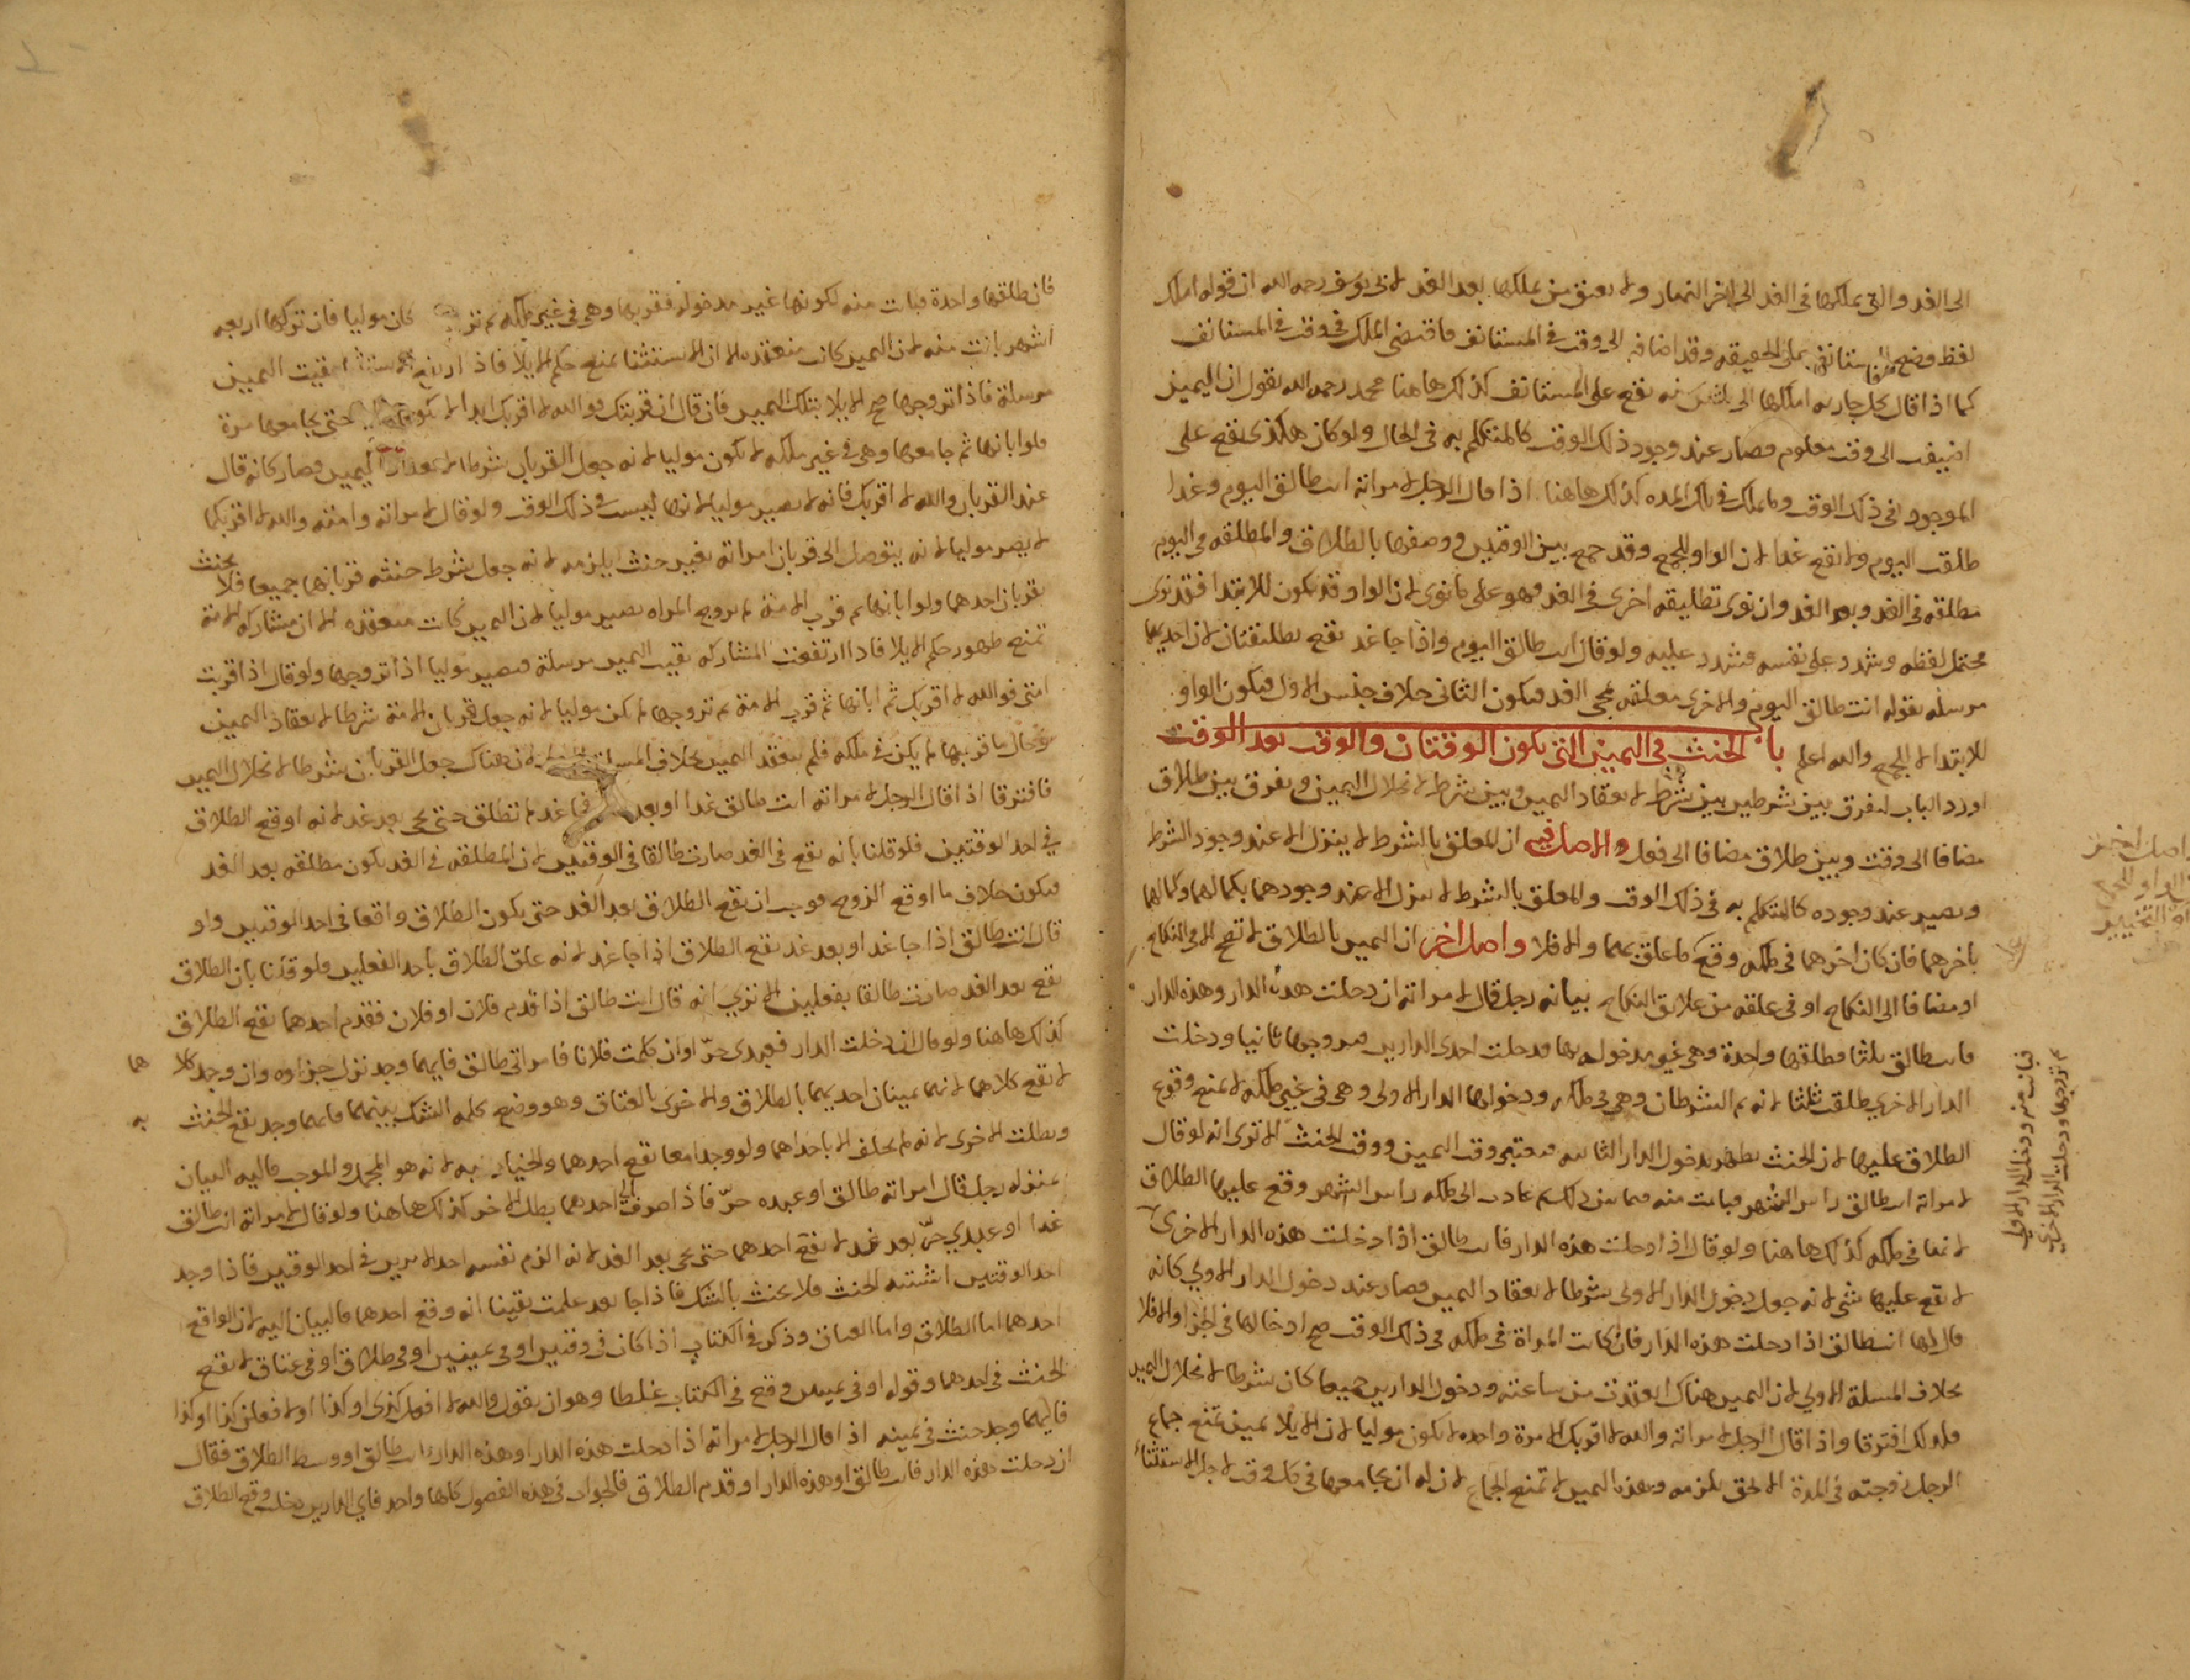 الى الغد والتي يملكها فى الغد الى اخر النهار ولا يعتق من يملكها بعد الغد لابى يوسف رحمه الله ان قوله املك
لفظ وضع للاستانف على الحقيقه وقد اضافه الى وقت فى المستانف فاقتضى الملك فى وقت فى المستانف
كما اذا قال كل جاريه املكها الى ثلثين سنه يقع على المستانف كذلك هاهنا محمد رحمه الله يقول ان اليمين
اضيف الى وقت معلوم فصار عند وجود ذلك الوقت كالمتكلم به فى الحال ولو كان هكذى يقع على
الموجود فى ذلك الوقت وما يملك فى تلك المده كذلك هاهنا اذا قال الرجل لامراته انت طالق اليوم وغدا
طلقت اليوم ولا يقع غدا لان الواو للجمع وقد جمع بين الوقتين ووصفها بالطلاق والمطلقه فى اليوم
مطلقه فى الغد وبعد الغد وان نوى تطليقه اخرى فى الغد فهو على ما نوى لان الواو قد يكون للابتدا فقد نوى
محتمل لفظه وشدد على نفسه فشدد عليه ولو قال انت طالق اليوم واذا جا غد يقع تطليقتان لان احديهما
مرسله بقوله انت طالق اليوم والاخرى معلقه بمجى الغد فيكون الثانى خلاف جنس الاول فيكون الواو
للابتدا لا للجمع والله اعلم باب الحنث فى اليمين التى يكون الوقتان والوقت بعد الوقت
اورد الباب ليفرق بين شرطين بين شرط لانعقاد اليمين وبين شرط لانحلال اليمين ويفرق بين طلاق
مضافا الى وقت وبين طلاق مضافا الى فعل والاصل فيه ان المعلق بالشرط لا ينزل الا عند وجود الشرط
ويصير عند وجوده كالمتكلم به فى ذلك الوقت والمعلق بالشرط لا ينزل الا عند وجودهما بكمالهما وكمالهما
باخرهما فان كان اخرهما فى ملكه وقع ما علق بهما والا فلا واصل اخر ان اليمين بالطلاق لا تصح الا فى النكاح
او مضافا الى النكاح او فى علقه من علائق النكاح بيانه رجل قال لامراته ان دخلت هذه الدار وهذه الدار
فانت طالق ثلثا فطلقها واحدة وهى غير مدخوله بها فدخلت احدى الدارين فتزوجها ثانيا ودخلت
الدار الاخرى طلقت ثلثا لانه تم الشرطان وهى فى ملكه ودخولها الدار الاولى وهى فى غير ملكه لا يمنع وقوع
الطلاق عليها لان الحنث يظهر بدخول الدار الثانيه فيعتبر وقت اليمين ووقت الحنث الا ترى انه لو قال
لامراته انت طالق راس الشهر فبانت منه فيما بين ذلك ثم عادت الى ملكه راس الشهر وقع عليها الطلاق
لانها فى ملكه كذلك هاهنا ولو قال اذا دخلت هذه الدار فانت طالق اذا دخلت هذه الدار الاخرى
لا يقع عليها شى لانه جعل دخول الدار الاولى شرطا لانعقاد اليمين فصار عند دخول الدار الاولى كانه
قال لها انت طالق اذا دخلت هذه الدار فان كانت المراة فى ملكه فى ذلك الوقت صح ادخالها فى الجزا والا فلا
بخلاف المسلة الاولى لان اليمين هناك انعقدت من ساعته ودخول الدارين جميعا كان شرطا لانحلال اليمين
فلذلك افترقا واذا قال الرجل لامراته والله لا اقربك الا مرة واحده لا يكون موليا لان الايلا يمين تمنع جماع
الرجل زوجته فى المدة الا بحق يلزمه وبهذا اليمين لا تمنع الجماع لان له ان يجامعها فى كل وقت لاجل الاستثناء
فبانت منه ودخل الدار الاولى
ثم تزوجها ودخلت الدار الاخرى
فان طلقها واحدة فبانت منه لكونها غير مدخوله فقربها وهى فى غير ملكه ثم كان موليا فان تركها اربعه
اشهر بانت منه لان اليمين كانت منعقده الا ان الاستثنا يمنع حكم الايلا فاذا بقيت اليمين
مرسلة فاذا تزوجها صح الايلا بتلك اليمين فان قال ان قربتك فوالله لا اقربك ابدا لا حتى يجامعها مرة
فلو ابانها ثم جامعها وهى فى غير ملكه لا يكون موليا لانه جعل القربان شرطا لانعقاد اليمين فصار كانه قال
عند القربان والله لا اقربك فانه لا يصير موليا لانها ليست فى ذلك الوقت ولو قال لامراته وامته والله لا اقربكما
لا يصر موليا لانه يتوصل الى قربان امراته بغير حنث يلزمه لانه جعل شرط حنثه قربانهما جميعا فلا يحنث
بقربان احدهما ولو ابانها ثم قرب الامة ثم تزوج المراه يصير موليا لان اليمين كانت منعقده الا ان مشاركه الامة
تمنع ظهور حكم الايلا فاذا ارتفعت المشاركه بقيت اليمين مرسلة فيصير موليا اذا تزوجها ولو قال اذا قربت
امتى فوالله لا اقربك ثم ابانها ثم قرب الامة ثم تزوجها لم يكن موليا لانه جعل قربان الامة شرطا لانعقاد اليمين
وحال ما قربها لم يكن فى ملكه فلم ينعقد اليمين بخلاف المسلة لان هناك جعل القربان شرطا لانحلال اليمين
فافترقا اذا قال الرجل لامراته انت طالق غدا او بعد غد لم تطلق حتى يجى بعد غد لانه اوقع الطلاق
فى احد الوقتين فلو قلنا بانه يقع فى الغد صارت طالقا فى الوقتين لان المطلقه فى الغد يكون مطلقه بعد الغد
فيكون خلاف ما اوقع الزوج فوجب ان يقع الطلاق بعد الغد حتى يكون الطلاق واقعا فى احد الوقتين ولو
قال انت طالق اذا جا غد او بعد غد يقع الطلاق اذا جا غد لانه علق الطلاق باحد الفعلين ولو قلنا بان الطلاق
يقع بعد الغد صارت طالقا بفعلين الا ترى انه قال انت طالق اذا قدم فلان او فلان فقدم احدهما يقع الطلاق
كذلك هاهنا ولو قال ان دخلت الدار فعبدى حرّ او ان كلمت فلانا فامراتى طالق فايهما وجد نزل جزاوه وان وجد كلاهما
لا يقع كلاهما لانهما يمينان احديهما بالطلاق والاخرى بالعتاق وهو وضع كلمه الشك بينهما فايهما وجد يقع الحنث به
وبطلت الاخرى لانه لم يحلف الا باحداهما ولو وجدا معا يقع احدهما والخيار اليه لانه هو المجمل والموجب فاليه البيان
بمنزله رجل قال امراته طالق او عبده حرّ فاذا صرف الى احدهما بطل الاخر كذلك هاهنا ولو قال لامراته انت طالق
غدا او عبدي حرّ بعد غد لا يقع احدهما حتى يجى بعد الغد لانه الزم نفسه احد الامرين فى احد الوقتين فاذا وجد
احد الوقتين اشتبه الحنث فلا يحنث بالشك فاذا جا بعد علمت يقينا انه وقع احدهما فالبيان اليه لان الواقع
احدهما اما الطلاق واما العتاق وذكر فى الكتاب اذا كان فى وقتين او فى يمينين او فى طلاق او فى عتاق لا يقع
الحنث فى احدهما وقوله او فى يمينين وقع فى الكتاب غلطا وهو ان يقول والله لا افعل كذى او كذا او لا فعلن كذا او كذا
فايهما وجد حنث فى يمينه اذا قال الرجل لامراته اذا دخلت هذه الدار او هذه الدار انت طالق او وسط الطلاق فقال
ان دخلت هذه الدار فانت طالق او هذه الدار او قدم الطلاق فالجواب فى هذه الفصول كلها واحد فاي الدارين دخلت وقع الطلاق